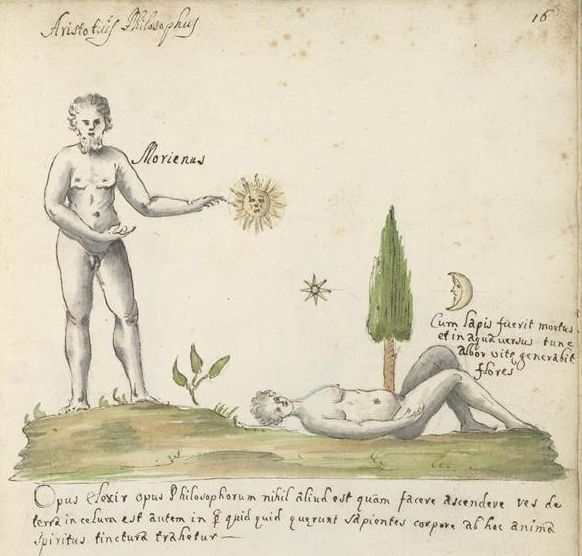 Aristotelis Philosophus
16
Morienus
Cum lapis fuerit mortus
et in aqua versus tunc
albor vite generabit
flores
Opus Elexir opus Philosophorum nihil aliud est quam facere ascendere ves de
terra in celum est autem in quid quid querunt sapientes corpore ab hoc anima
spiritus tinctura trahetur —